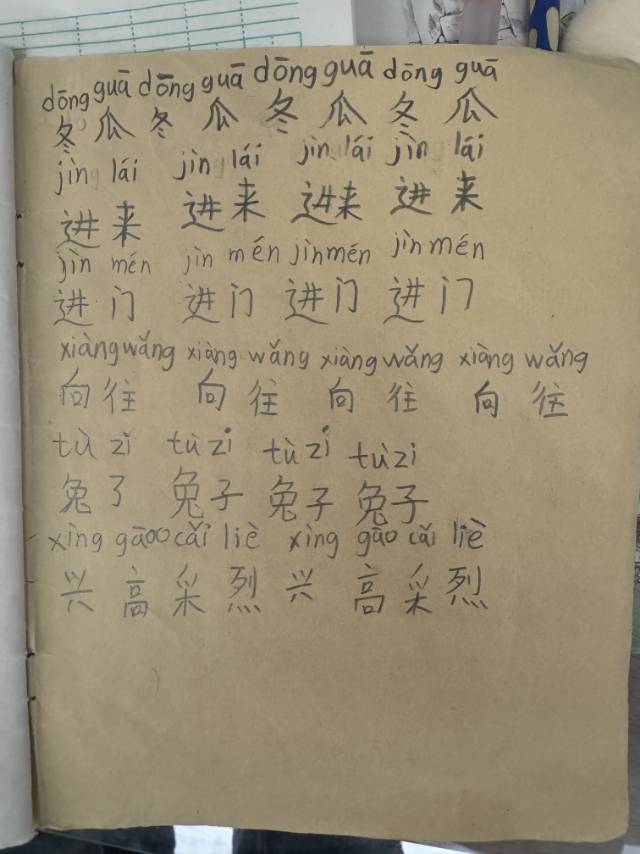 dōng guā dōng guā dōng guā dōng guā
冬 瓜 冬 瓜 冬 瓜 冬 瓜
jìn lái jìn lái jìn lái jìn lái
进 来 进 来 进 来 进 来
jìn mén jìn mén jìn mén jìn mén
进 门 进 门 进 门 进 门
xiàng wǎng xiàng wǎng xiàng wǎng xiàng wǎng
向 往 向 往 向 往 向 往
tù zǐ tù zi tù zi tù zi
兔 了 兔子 兔子 兔子
xìng gāoo cǎi liè xìng gāo cǎi liè
兴 高 采 烈 兴 高 采 烈